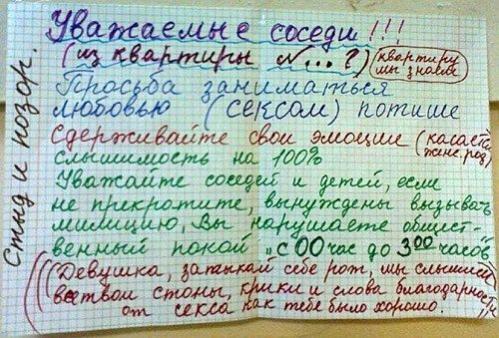 Уважаемые соседи!!!
(из квартиры N...?) (квартиру мы знаем)
Просьба заниматься
любовью (сексом) потише
Сдерживайте свои эмоции (касается женс. род)
слышимость на 100%
Уважайте соседей и детей, если
не прекратите, вынуждены вызывать
милицию, Вы нарушаете общест-
венный покой "с 00 час до 3 00 часов"
(((Девушка, затыкай себе рот, мы слышим
все твои стоны, крики и слова благодарности
от секса как тебе было хорошо.
Стыд и позор.